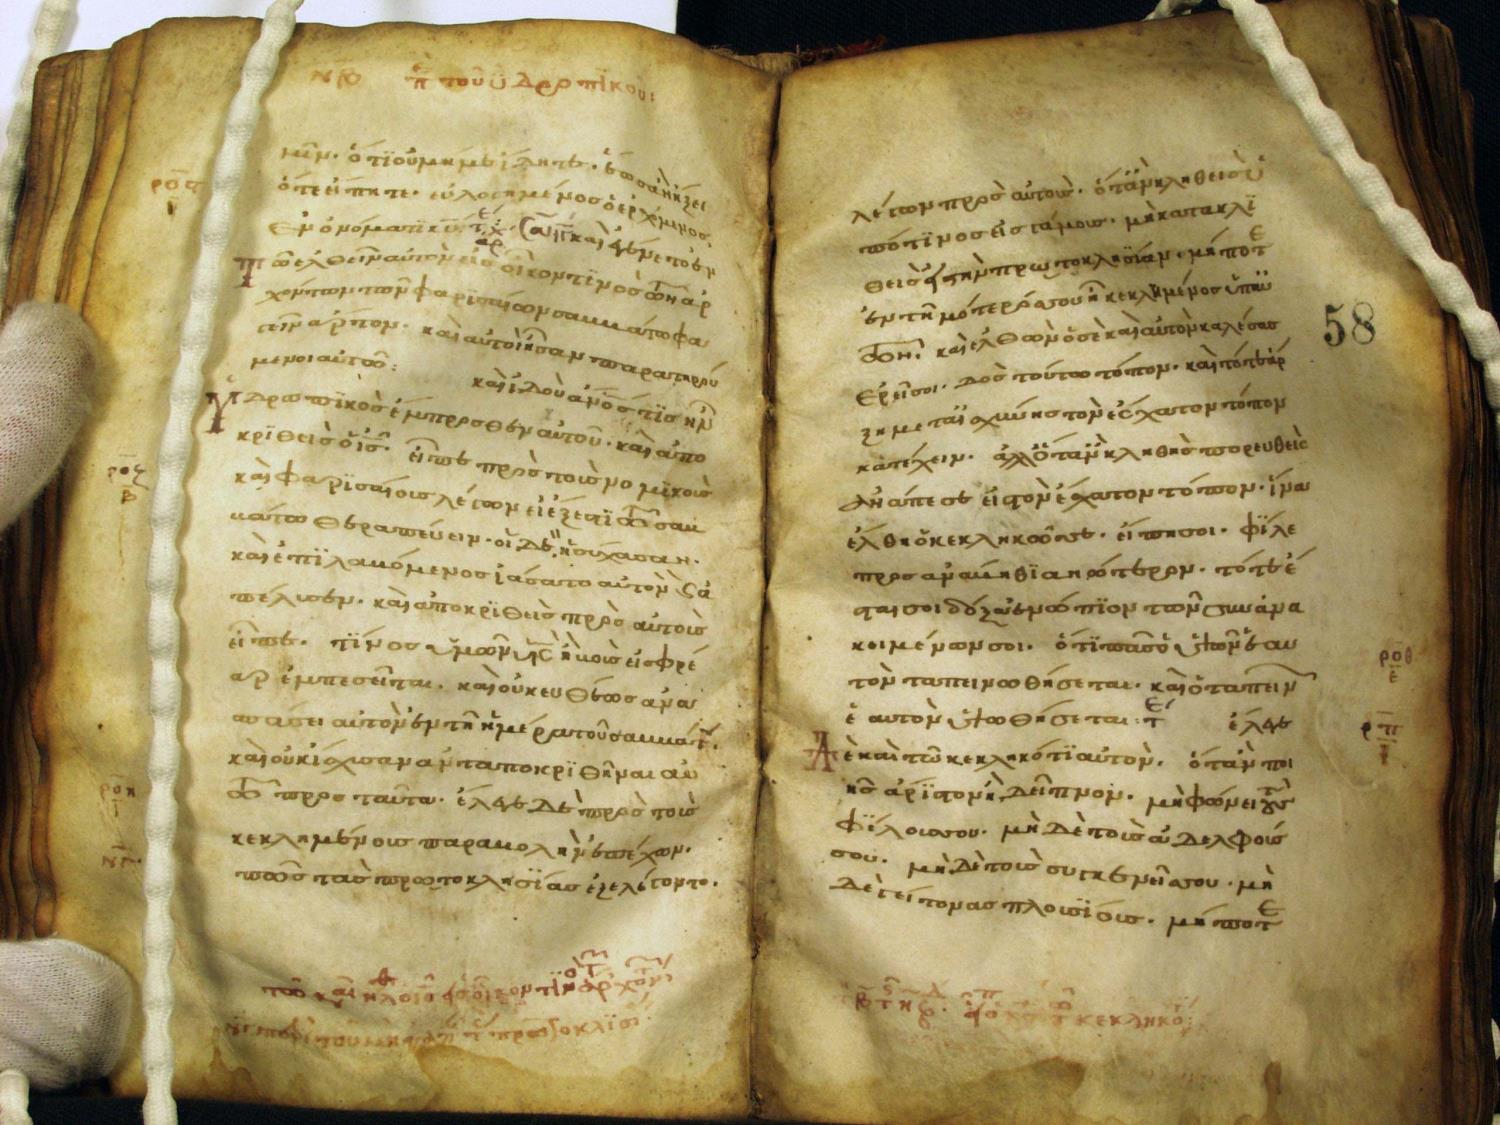 π̅ τοῦ ϋδρωπϊκοῦ:
μῖν· ὅτι οὐ μή με ἴδητε· ἕως ἂν ἥξει
ὅτε εἴπητε· εὐλογημένος ὁ ἐρχόμενος,
ἐν ὀνόματι κ̅υ̅· καὶ ἐγένετο ἐν
τῶ ἐλθεῖν αὐτὸν εἰς οἶκον τινος τῶν ἀρ
χόντων τῶν φαρισαίων σαμμάτω φα
γεῖν ἄρτον· καὶ αὐτοὶ ἦσαν παρατηρού
μενοι αὐτῶ: καὶ ἰδοὺ ἄν̅ο̅ς τϊς ἦν
ὑδρωπϊκὸς ἔμπροσθεν αὐτοῦ· καὶ ἀπο
κριθεὶς ὁ ι̅ς̅· εἶπε πρὸς τοὺς νομϊκοὺς
καὶ φαρϊσαίους λέγων εἰ ἔξεστϊ τῶ σαμ
μάτω θεραπεύειν· οἱ δὲ ἡσύχασαν·
καὶ ἐπϊλαμόμενος ἰάσατο αὐτὸν καὶ ἀ
πέλυσεν· καὶ ἀποκρϊθεὶς πρὸς αὐτοὺς
εἶπε· τϊνος ὑμῶν υ̅ς̅ ἢ μοῦς εἰς φρέ
αρ ἐμπεσεῖται· καὶ οὐκ εὐθέως ἀνα
σπάσει αὐτὸν ἐν τῆ ἡμέρα τοῦ σαμμάτ·
καὶ οὐκ ἴσχυσαν ἀνταποκρϊθῆναι αὐ
τῶ πρὸς ταῦτα· ἔλεγε δὲ πρὸς τοὺς
κεκλημένους παραμολὴν ἐπέχων·
πῶς τὰς πρωτοκλησΐας ἐξελέγοντο·
λέγων πρὸς αὐτούς· ὅταν κληθεὶς ὑ
πό τϊνος εἰς γάμους· μὴ κατακλϊ
θεὶς εἰς τὴν πρωτοκλησϊαν· μήποτε
ἐντϊμότερός σου ἦ κεκλημένος ὑπ' αὐ
τοῦ· καὶ ἐλθὼν ὁ σὲ καὶ αὐτὸν καλέσας
ἐρεῖ σοι· δὸς τούτω τόπον· καὶ τότε ἄρ
ξη μετ' αἰσχύνης τὸν ἔσχατον τόπον
κατέχειν· ἀλλ' ὅταν κληθῆς πορευθεὶς
ἀνάπεσε εἰς τὸν ἔσχατον τόπον· ἵνα
ἔλθη ὁ κεκληκῶς σε· εἴπη σοι· φϊλε
προσανάμηθϊ ἀνώτερον· τότε ἔ
σται σοι δόξα ἐνώπϊον τῶν συνανα
κειμένων σοι· ὅτϊ πᾶς ὁ ὑψῶν ἑαυ
τὸν ταπεινωθήσεται· καὶ ὁ ταπεινῶν
ἑαυτὸν ὑψωθήσεται: ἔλεγε
δὲ καὶ τῶ κεκληκότϊ αὐτόν· ὅταν ποι
ῆς ἄρϊστον ἢ δεῖπνον· μὴ φώνει τοὺς
φϊλους σου· μὴ δὲ τοὺς ἀδελφούς
σου· μὴ δὲ τοὺς συγγενεῖς σου· μὴ
δὲ γείτονας πλουσϊους· μήποτε
58
ρο̅θ̅
ρ̅π̅